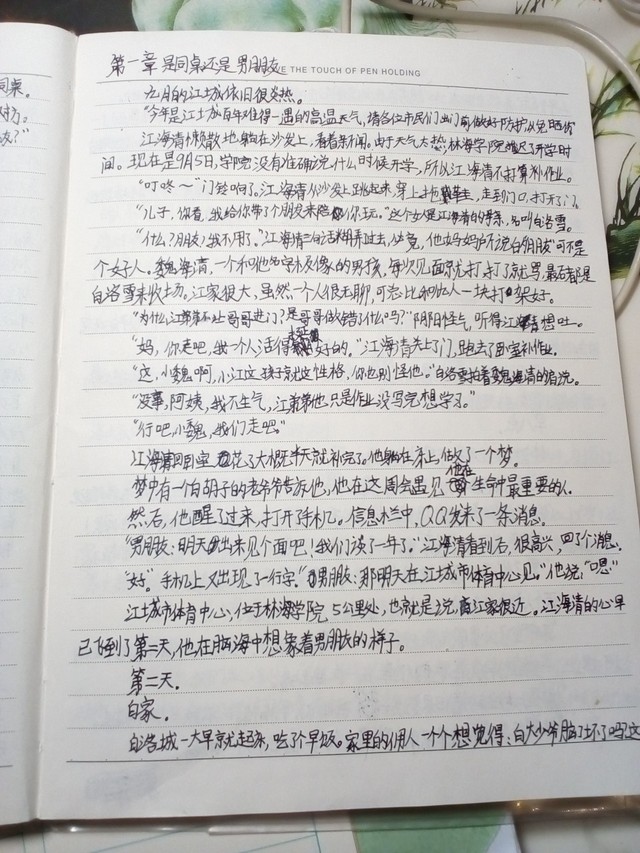 第一章 是同桌还是男朋友
E THE TOUCH OF PEN HOLDING
九月的江城依旧很炎热。
"今年是江城百年难得一遇的高温天气，请各位市民们出门前做好防护以免晒伤"
江海清懒散地躺在沙发上，看着新闻。由于天气太热，林海学院推迟了开学时
间。现在是9月5日，学院没有准确说什么时候开学，所以江海清不打算补作业。
"叮咚～"门铃响了。江海清从沙发上跳起来，穿上拖鞋，走到门口，打开了门。
"儿子，你看，我给你带了个朋友来陪你玩。"这个女人是江海清的母亲，名叫白洛雪。
"什么？朋友？我不用了。"江海清三句话糊弄过去，毕竟，他妈妈所说的"朋友"可不是
个好人。魏海清，一个和他名字极像的男孩，每次见面就打，打了就骂，最后都是
白洛雪来收场。江家很大，虽然一个人很无聊，可总比和他人一块打架好。
"为什么江弟弟不让哥哥进门？是哥哥做错了什么吗？"阴阳怪气，听得江海清想吐。
"妈，你走吧，我一个人活得挺好的。"江海清关上了门，跑去了卧室补作业。
"这，小魏啊，小江这孩子就这性格，你也别怪他。"白洛雪拍着魏海清的肩说。
"没事，阿姨，我不生气，江弟弟他只是作业没写完想学习。"
"行吧，小魏，我们走吧。"
江海清回卧室花了大概半天就补完了。他躺在床上，做了一个梦。
梦中有一个白胡子的老爷爷告诉他，他在这周会遇见他在生命中最重要的人。
然后，他醒了过来，打开手机。信息栏中，QQ发来了一条消息。
"男朋友：明天出来见个面吧！我们谈了一年了。"江海清看到后，很高兴，回了个消息。
"好。"手机上又出现了一行字。"男朋友：那明天在江城市体育中心见。"他说："嗯"
江城市体育中心，位于林海学院5公里处，也就是说，离江家很近。江海清的心早
已飞到了第二天，他在脑海中想象着男朋友的样子。
第二天。
白家。
白洛城一大早就起来，吃了个早饭。家里的佣人一个个想觉得：白大少爷脑子坏了吗？这
同桌。
友？"